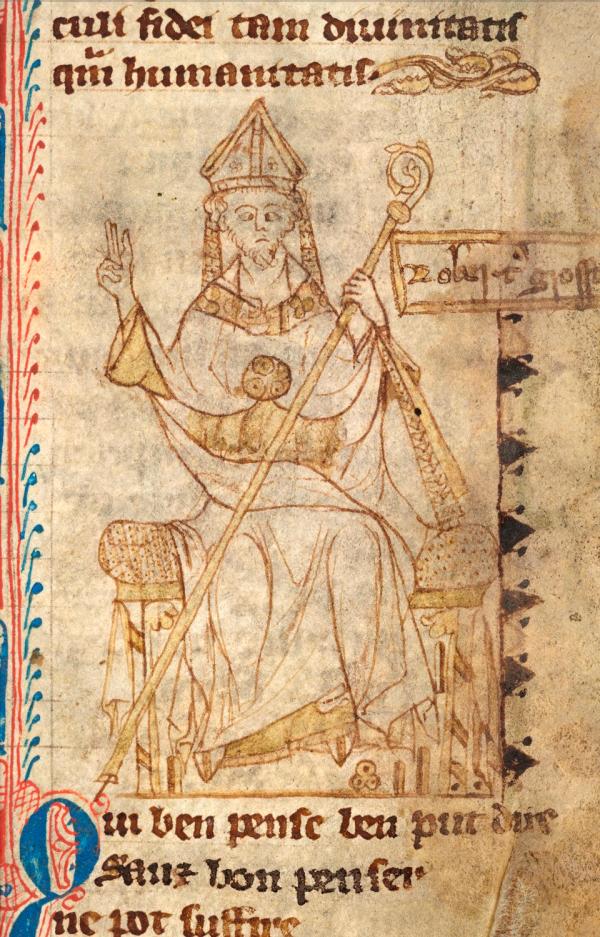 culi fidei tam diuinitatis
qm̄ humanitatis.
Robert⁹ grosse
Qui ben pense ben put dire
Sanz bon penser
ne pot suffire